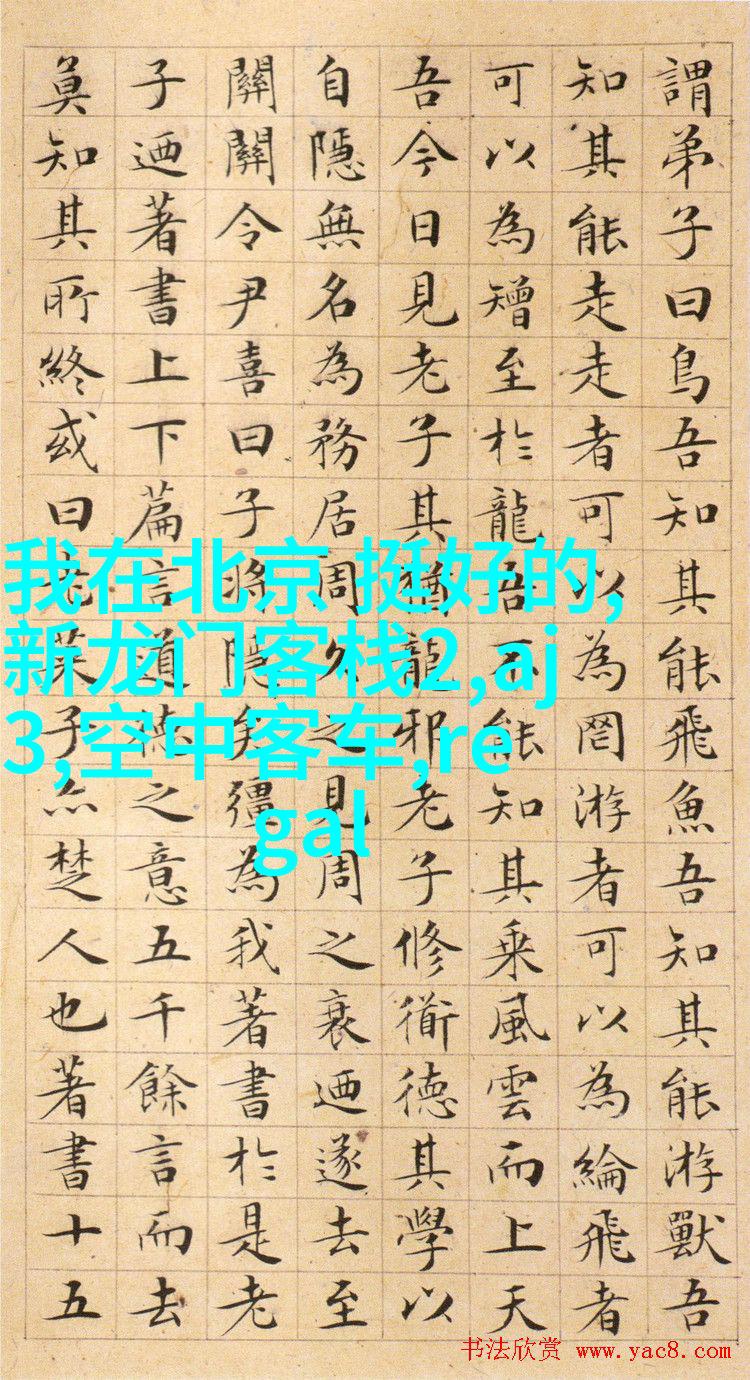 謂弟子曰鳥吾知其能飛魚吾知其能游獸吾
知其能走走者可以為罔游者可以為綸飛者
可以為矰至於龍吾不能知其乘風雲而上天
吾今日見老子其猶龍邪老子修衜德其學以
自隱無名為務居周久之見周之衰迺遂去至
關關令尹喜曰子將隱矣彊為我著書於是老
子迺著書上下篇言道德之意五千餘言而去
莫知其所終或曰老莱子亦楚人也著書十五
我在北京 挺好的,
新龙门客栈2,aj
3,空中客车,re
gal
书法欣赏 www.yac8.com